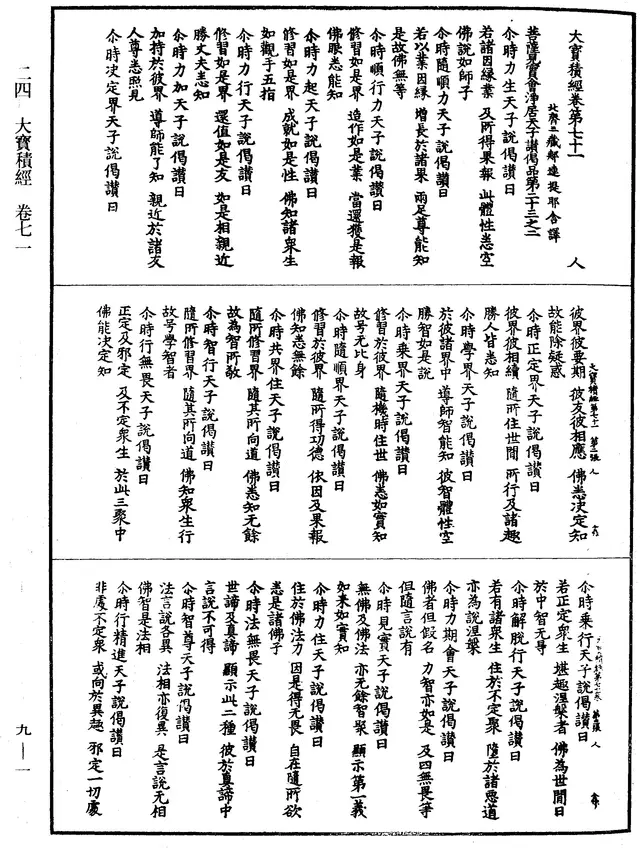 大寶積經卷第七十一
人
北齊三藏那連提耶舍譯
菩薩見實會淨居天子讚偈品第二十三之二
尒時力生天子說偈讚曰
若諸因緣業 及所得果報 此體性悉空
佛說如師子
尒時隨順力天子說偈讚曰
若以業因緣 增長於諸果 兩足尊能知
是故佛無等
尒時順行力天子說偈讚曰
修習如是界 造作如是業 當還獲是報
佛眼悉能知
尒時力起天子說偈讚曰
修習如是界 成就如是性 佛知諸衆生
如觀手五指
尒時力行天子說偈讚曰
修習如是界 還值如是友 如是相親近
勝丈夫悉知
尒時力加天子說偈讚曰
加持於彼界 導師能了知 親近於諸友
人尊悉照見
尒時決定界天子說偈讚曰
彼界彼要期 彼友彼相應 佛悉決定知
故能除疑惑
大寶積經第七十一 第二張 人
尒時正定界天子說偈讚曰
彼界彼相續 隨所住世間 所行及諸趣
勝人皆悉知
尒時學界天子說偈讚曰
於彼諸界中 導師智能知 彼智體性空
勝智如是說
尒時乘界天子說偈讚曰
修習於彼界 隨機時住世 佛悉如實知
故号无比身
尒時隨順界天子說偈讚曰
修習於彼界 隨所得功德 依因及果報
佛知悉無餘
尒時共界住天子說偈讚曰
隨所修習界 隨其所向道 佛悉知无餘
故為智所敬
尒時智行天子說偈讚曰
隨所修習界 隨其所向道 佛知衆生行
故号學智者
尒時行無畏天子說偈讚曰
正定及邪定 及不定衆生 於此三聚中
佛能决定知
尒時乘行天子說偈讚曰
若正定衆生 堪趣涅槃者 佛為世間日
於中智无㝵
尒時解脫行天子說偈讚曰
若有諸衆生 住於不定聚 墮於諸惡道
亦為說涅槃
尒時力期會天子說偈讚曰
佛者但假名 力智亦如是 及四無畏等
但隨言說有
尒時見實天子說偈讚曰
無佛及佛法 亦无餘智聚 顯示第一義
如来如實知
尒時力住天子說偈讚曰
住於佛法力 因是得无畏 自在隨所欲
悉是諸佛子
尒時法無畏天子說偈讚曰
世諦及真諦 顯示此二種 彼於真諦中
言說不可得
尒時智尊天子說偈讚曰
法言說各異 法相亦復異 是言說无相
佛智是法相
尒時行精進天子說偈讚曰
非處不定衆 或向於異趣 邪定一切處
二四 大寶積經 卷七一
九—一